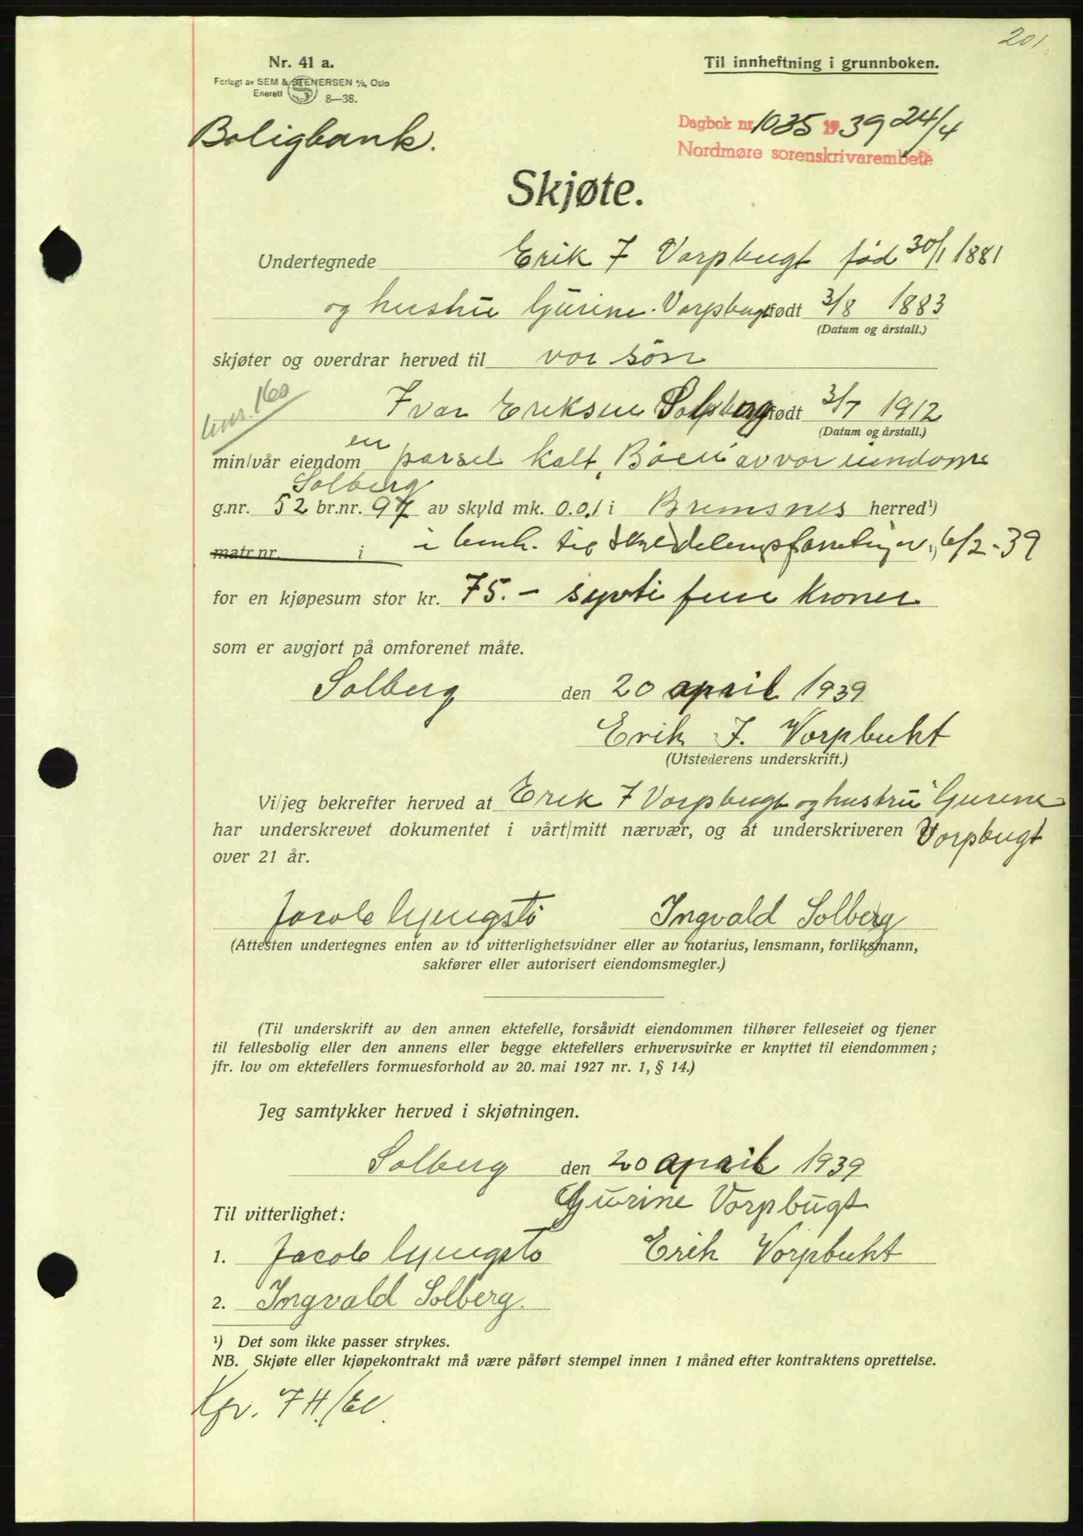 201.
Nr. 41 a.
Forlagt av SEM & STENERSEN A/S, Oslo
Enerett S 8—38.
Til innheftning i grunnboken.
Boligbank.
Dagbok nr. 1035 1939 24/4
Nordmøre sorenskrivarembete
Skjøte.
Undertegnede Erik J Vorpbugt fød 30/1 1881
og hustru Gurine Vorpbugt født 3/8 1883
(Datum og årstall.)
skjøter og overdrar herved til vor søn
Ivar Eriksen Solberg født 3/7 1912
(Datum og årstall.)
min/vår eiendom en parsel kalt „Bøen" av vor eiendom
Solberg
g.nr. 52 br.nr. 97 av skyld mk. 0.01 i Bremsnes herred¹)
matr.nr. i i henh. til skyldelingsforretning av 6/2-39
for en kjøpesum stor kr. 75.— sytti fem kroner
som er avgjort på omforenet måte.
Solberg den 20 april 1939
Erik J. Vorpbukt
(Utstederens underskrift.)
Vi/jeg bekrefter herved at Erik J Vorpbugt og hustru Gurine
har underskrevet dokumentet i vårt/mitt nærvær, og at underskriveren Vorpbugt
over 21 år.
Jacob Lyngstø Ingvald Solberg
(Attesten undertegnes enten av to vitterlighetsvidner eller av notarius, lensmann, forliksmann,
sakfører eller autorisert eiendomsmegler.)
(Til underskrift av den annen ektefelle, forsåvidt eiendommen tilhører felleseiet og tjener
til fellesbolig eller den annens eller begge ektefellers erhvervsvirke er knyttet til eiendommen;
jfr. lov om ektefellers formuesforhold av 20. mai 1927 nr. 1, § 14.)
Jeg samtykker herved i skjøtningen.
Solberg den 20 april 1939
Gurine Vorpbugt
Til vitterlighet:
1. Jacob Lyngstø Erik Vorpbukt
2. Ingvald Solberg.
¹) Det som ikke passer strykes.
NB. Skjøte eller kjøpekontrakt må være påført stempel innen 1 måned efter kontraktens oprettelse.